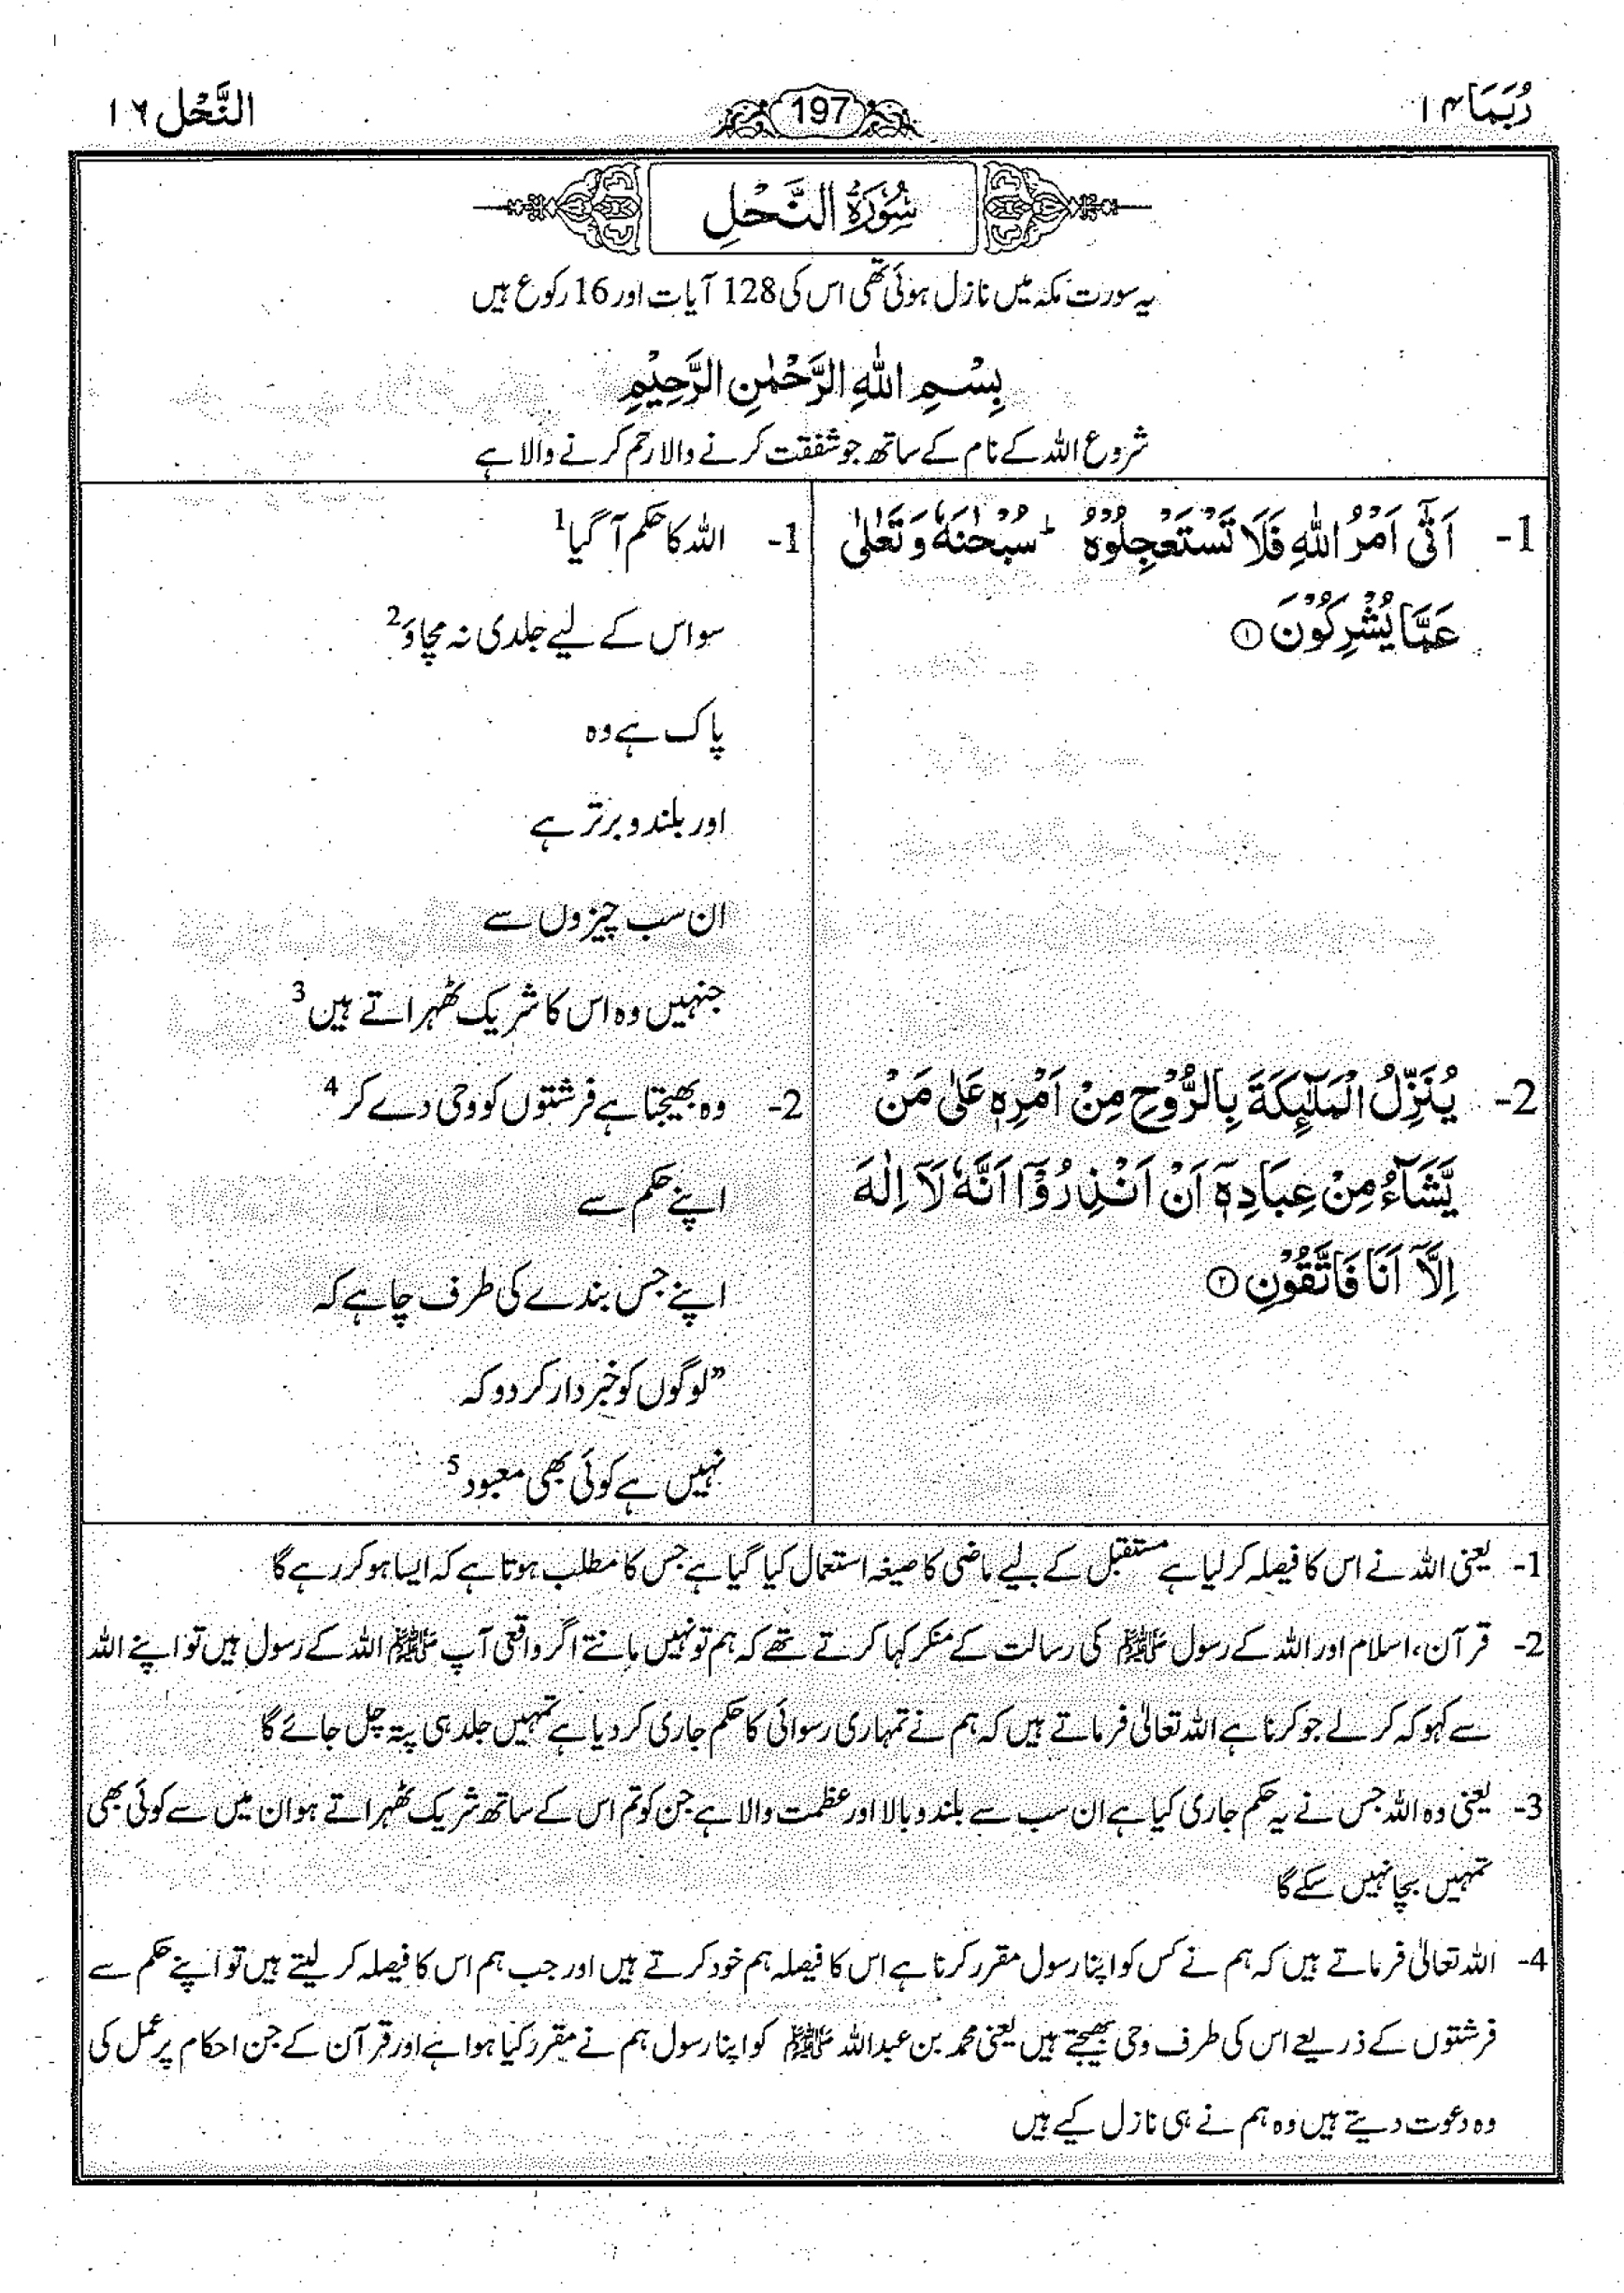 رُبَمَا ۱۴
197
النَّحْل ۱٦
سُوْرَةُ النَّحْلِ
یہ سورت مکہ میں نازل ہوئی تھی اس کی 128 آیات اور 16 رکوع ہیں
بِسْمِ اللّٰهِ الرَّحْمٰنِ الرَّحِیْمِ
شروع اللہ کے نام کے ساتھ جو شفقت کرنے والا رحم کرنے والا ہے
1- اَتٰۤی اَمْرُ اللّٰهِ فَلَا تَسْتَعْجِلُوْهُ ؕ سُبْحٰنَهٗ وَ تَعٰلٰی
عَمَّا یُشْرِكُوْنَ ۱
1- اللہ کا حکم آ گیا 1
سو اس کے لیے جلدی نہ مچاؤ 2
پاک ہے وہ
اور بلند و برتر ہے
ان سب چیزوں سے
جنہیں وہ اس کا شریک ٹھہراتے ہیں 3
2- یُنَزِّلُ الْمَلٰٓىِٕكَةَ بِالرُّوْحِ مِنْ اَمْرِهٖ عَلٰی مَنْ
یَّشَآءُ مِنْ عِبَادِهٖۤ اَنْ اَنْذِرُوْۤا اَنَّهٗ لَاۤ اِلٰهَ
اِلَّاۤ اَنَا فَاتَّقُوْنِ ۲
2- وہ بھیجتا ہے فرشتوں کو وحی دے کر 4
اپنے حکم سے
اپنے جس بندے کی طرف چاہے کہ
”لوگوں کو خبردار کر دو کہ
نہیں ہے کوئی بھی معبود 5
1- یعنی اللہ نے اس کا فیصلہ کر لیا ہے مستقبل کے لیے ماضی کا صیغہ استعمال کیا گیا ہے جس کا مطلب ہوتا ہے کہ ایسا ہو کر رہے گا
2- قرآن، اسلام اور اللہ کے رسول ﷺ کی رسالت کے منکر کہا کرتے تھے کہ ہم تو نہیں مانتے اگر واقعی آپ ﷺ اللہ کے رسول ہیں تو اپنے اللہ
سے کہو کہ کر لے جو کرنا ہے اللہ تعالیٰ فرماتے ہیں کہ ہم نے تمہاری رسوائی کا حکم جاری کر دیا ہے تمہیں جلد ہی پتہ چل جائے گا
3- یعنی وہ اللہ جس نے یہ حکم جاری کیا ہے ان سب سے بلند و بالا اور عظمت والا ہے جن کو تم اس کے ساتھ شریک ٹھہراتے ہو ان میں سے کوئی بھی
تمہیں بچا نہیں سکے گا
4- اللہ تعالیٰ فرماتے ہیں کہ ہم نے کس کو اپنا رسول مقرر کرنا ہے اس کا فیصلہ ہم خود کرتے ہیں اور جب ہم اس کا فیصلہ کر لیتے ہیں تو اپنے حکم سے
فرشتوں کے ذریعے اس کی طرف وحی بھیجتے ہیں یعنی محمد بن عبداللہ ﷺ کو اپنا رسول ہم نے مقرر کیا ہوا ہے اور قرآن کے جن احکام پر عمل کی
وہ دعوت دیتے ہیں وہ ہم نے ہی نازل کیے ہیں